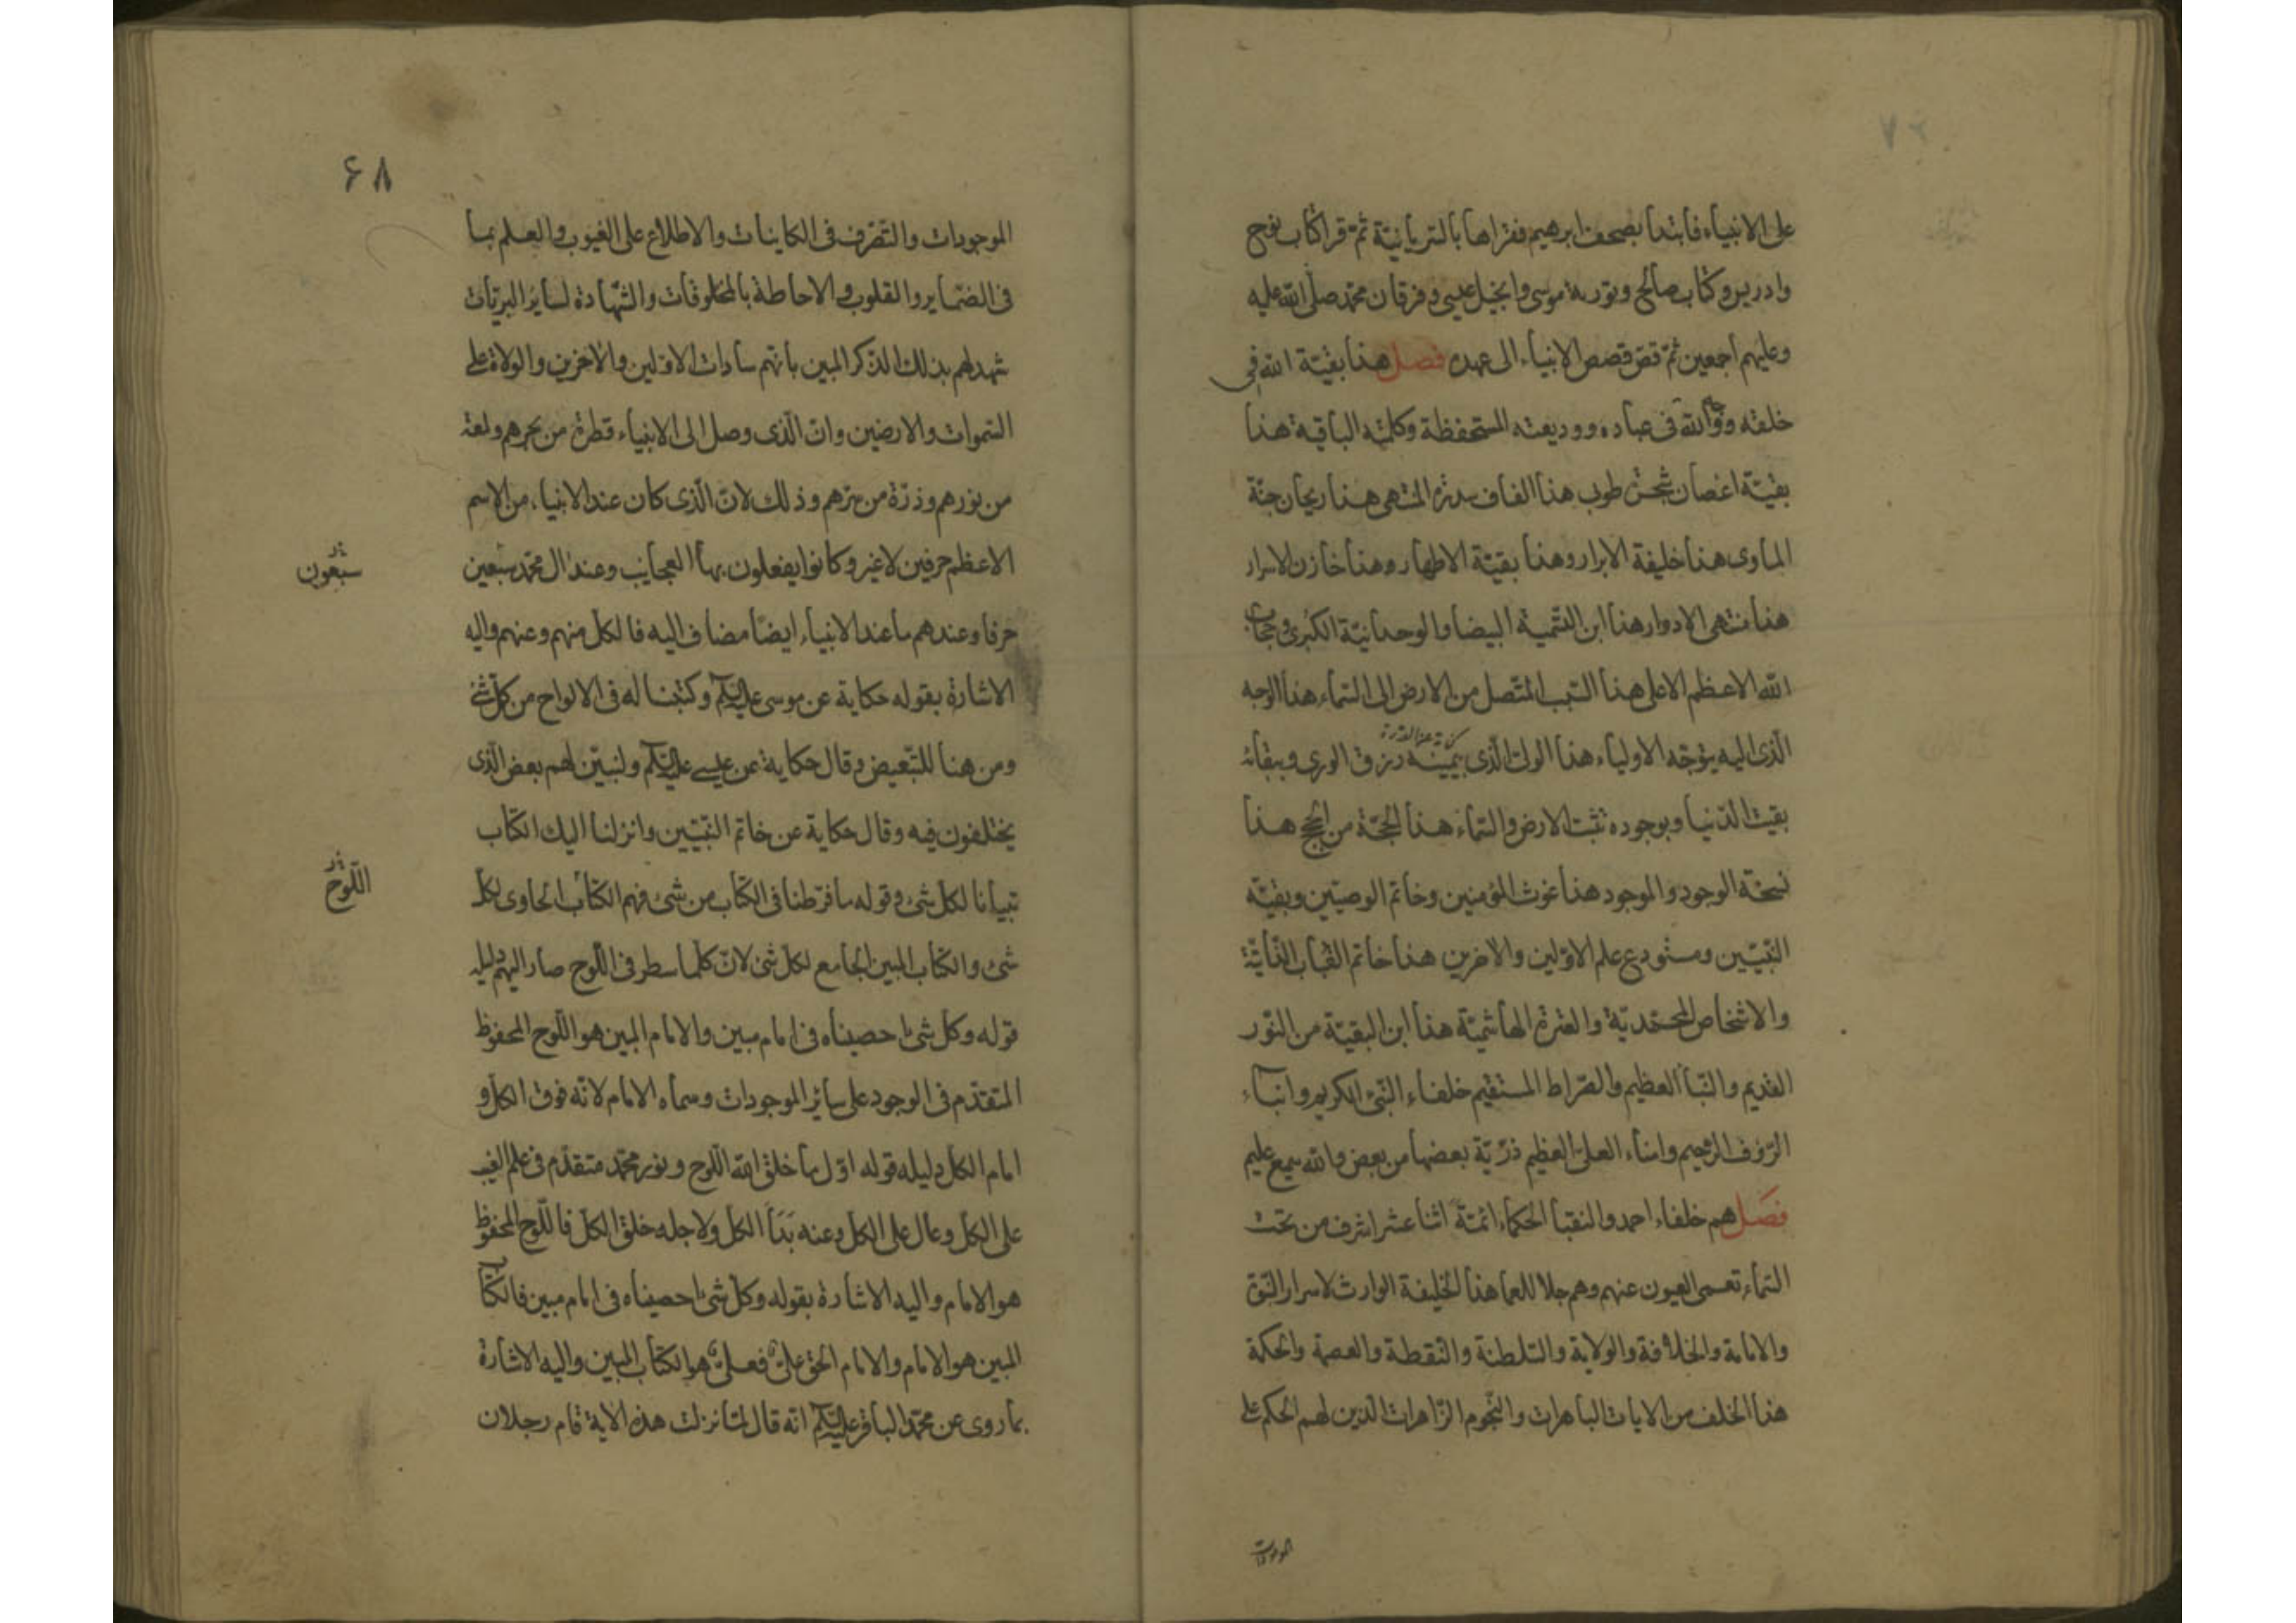 على الانبياء فابتدا بصحف ابرهيم فقراها بالسريانية ثم قرا كتاب نوح
وادريس وكتاب صالح وتورية موسى وانجيل عيسى وفرقان محمد صلى الله عليه
وعليهم اجمعين ثم قص قصص الانبياء الى عهده فصل هذا بقية الله في
خلقه وو الله في عباده ووديعته المستحفظة وكلمته الباقية هذا
بقية اغصان شجرة طوبى هذا الفاف سدرة المنتهى هذا ريحان جنة
الماوى هذا خليفة الابرار وهذا بقية الاطهار وهذا خازن الاسرار
هذا منتهى الادوار هذا ابن التسمية البيضا والوحدانية الكبرى وحجاب
الله الاعظم الاعلى هذا السبب المتصل من الارض الى السماء هذا الوجه
الذى اليه يتوجه الاولياء هذا الولى الذى بيمينه رزق الورى وببقائه
كناية عن القدرة
بقيت الدنيا وبوجوده ثبتت الارض والسماء هذا الحجة من الحجج هذا
نسخة الوجود والموجود هذا غوث المؤمنين وخاتم الوصيين وبقية
النبيين ومستودع علم الاولين والاخرين هذا خاتم الالقاب
والاشخاص المحمدية والعترة الهاشمية هذا ابن البقية من النور
القديم والنبا العظيم والصراط المستقيم خلفاء النبى الكريم وابناء
الرؤف الرحيم وامناء العلى العظيم ذرية بعضها من بعض والله سميع عليم
فصل هم خلفاء احمد والنقبا الحكماء ائمة اثنا عشر اشرف من تحت
السماء تعمى العيون عنهم وهم جلا للعما هذا الخليفة الوارث لاسرار النبوة
والامامة والخلافة والولاية والسلطنة والنقطة والعصمة والحكمة
هذا الخلف من الايات الباهرات والنجوم الزاهرات الذين لهم الحكم على
الموجودات
۶۸
الموجودات والتصرف فى الكاينات والاطلاع على الغيوب والعلم بما
فى الضماير والقلوب والاحاطة بالمخلوقات والشهادة لساير البريات
شهد لهم بذلك الذكر المبين بانهم سادات الاولين والاخرين والولاة على
السموات والارضين وان الذى وصل الى الانبياء قطرة من بحرهم ولمعة
من نورهم وذرة من سرهم وذلك لان الذى كان عند الانبياء من الاسم
الاعظم حرفين لاغير وكانوا يفعلون بها العجايب وعند ال محمد سبعين
سبعون
حرفا وعندهم ما عند الانبياء ايضا مضاف اليه فالكل منهم وعنهم واليه
الاشارة بقوله حكاية عن موسى عليه السلام وكتبنا له فى الالواح من كل شئ
ومن هنا للتبعيض وقال حكاية عن عيسى عليه السلام ولنبين لهم بعض الذى
يختلفون فيه وقال حكاية عن خاتم النبيين وانزلنا اليك الكتاب
تبيانا لكل شئ وقوله ما فرطنا فى الكتاب من شئ فهم الكتاب الحاوى لكل
اللوح
شئ والكتاب المبين الجامع لكل شئ لان كلما سطر فى اللوح صار اليهم دليله
قوله وكل شئ احصيناه فى امام مبين والامام المبين هو اللوح المحفوظ
المتقدم فى الوجود على سائر الموجودات وسماه الامام لانه فوق الكل و
امام الكل دليله قوله اول ما خلق الله اللوح ونور محمد متقدم فى علم الغيب
على الكل وعال على الكل وعنه بدأ الكل ولاجله خلق الكل فاللوح المحفوظ
هو الامام واليه الاشارة بقوله وكل شئ احصيناه فى امام مبين فالكتاب
المبين هو الامام والامام الحق على فعلى هو الكتاب المبين واليه الاشارة
بما روى عن محمد الباقر عليه السلام انه قال لما نزلت هذه الاية قام رجلان